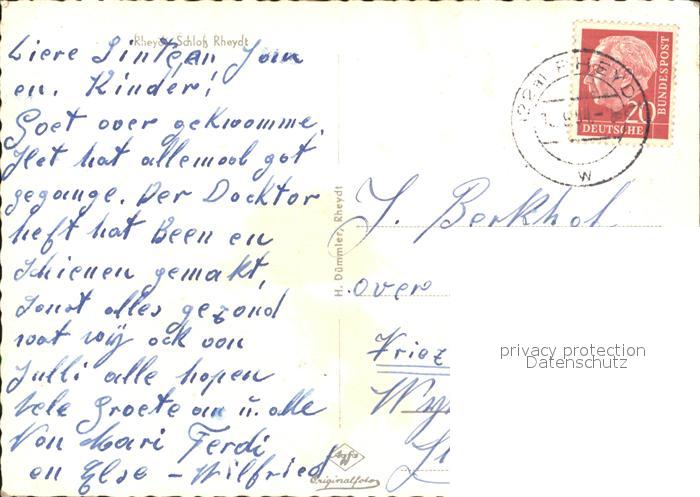 Rheydt, Schloß Rheydt
Liere Jan
en. Kinder!
Goet over gekwomme,
Het hat allemoob got
gegange. Der Docktor
heft hat Been en
Schienen gemakt,
Sonst alles gezond
wat wij ock von
Julli alle hopen
vele Groete an ü. alle
Von Mari Ferdi
en Else - Wilfried
H. Dümmler, Rheydt
Agfa
Originalfoto
(22a) RHEYDT
W
20
DEUTSCHE
BUNDESPOST
J. Berkhol
over
Vriez
Wij
privacy protection
Datenschutz